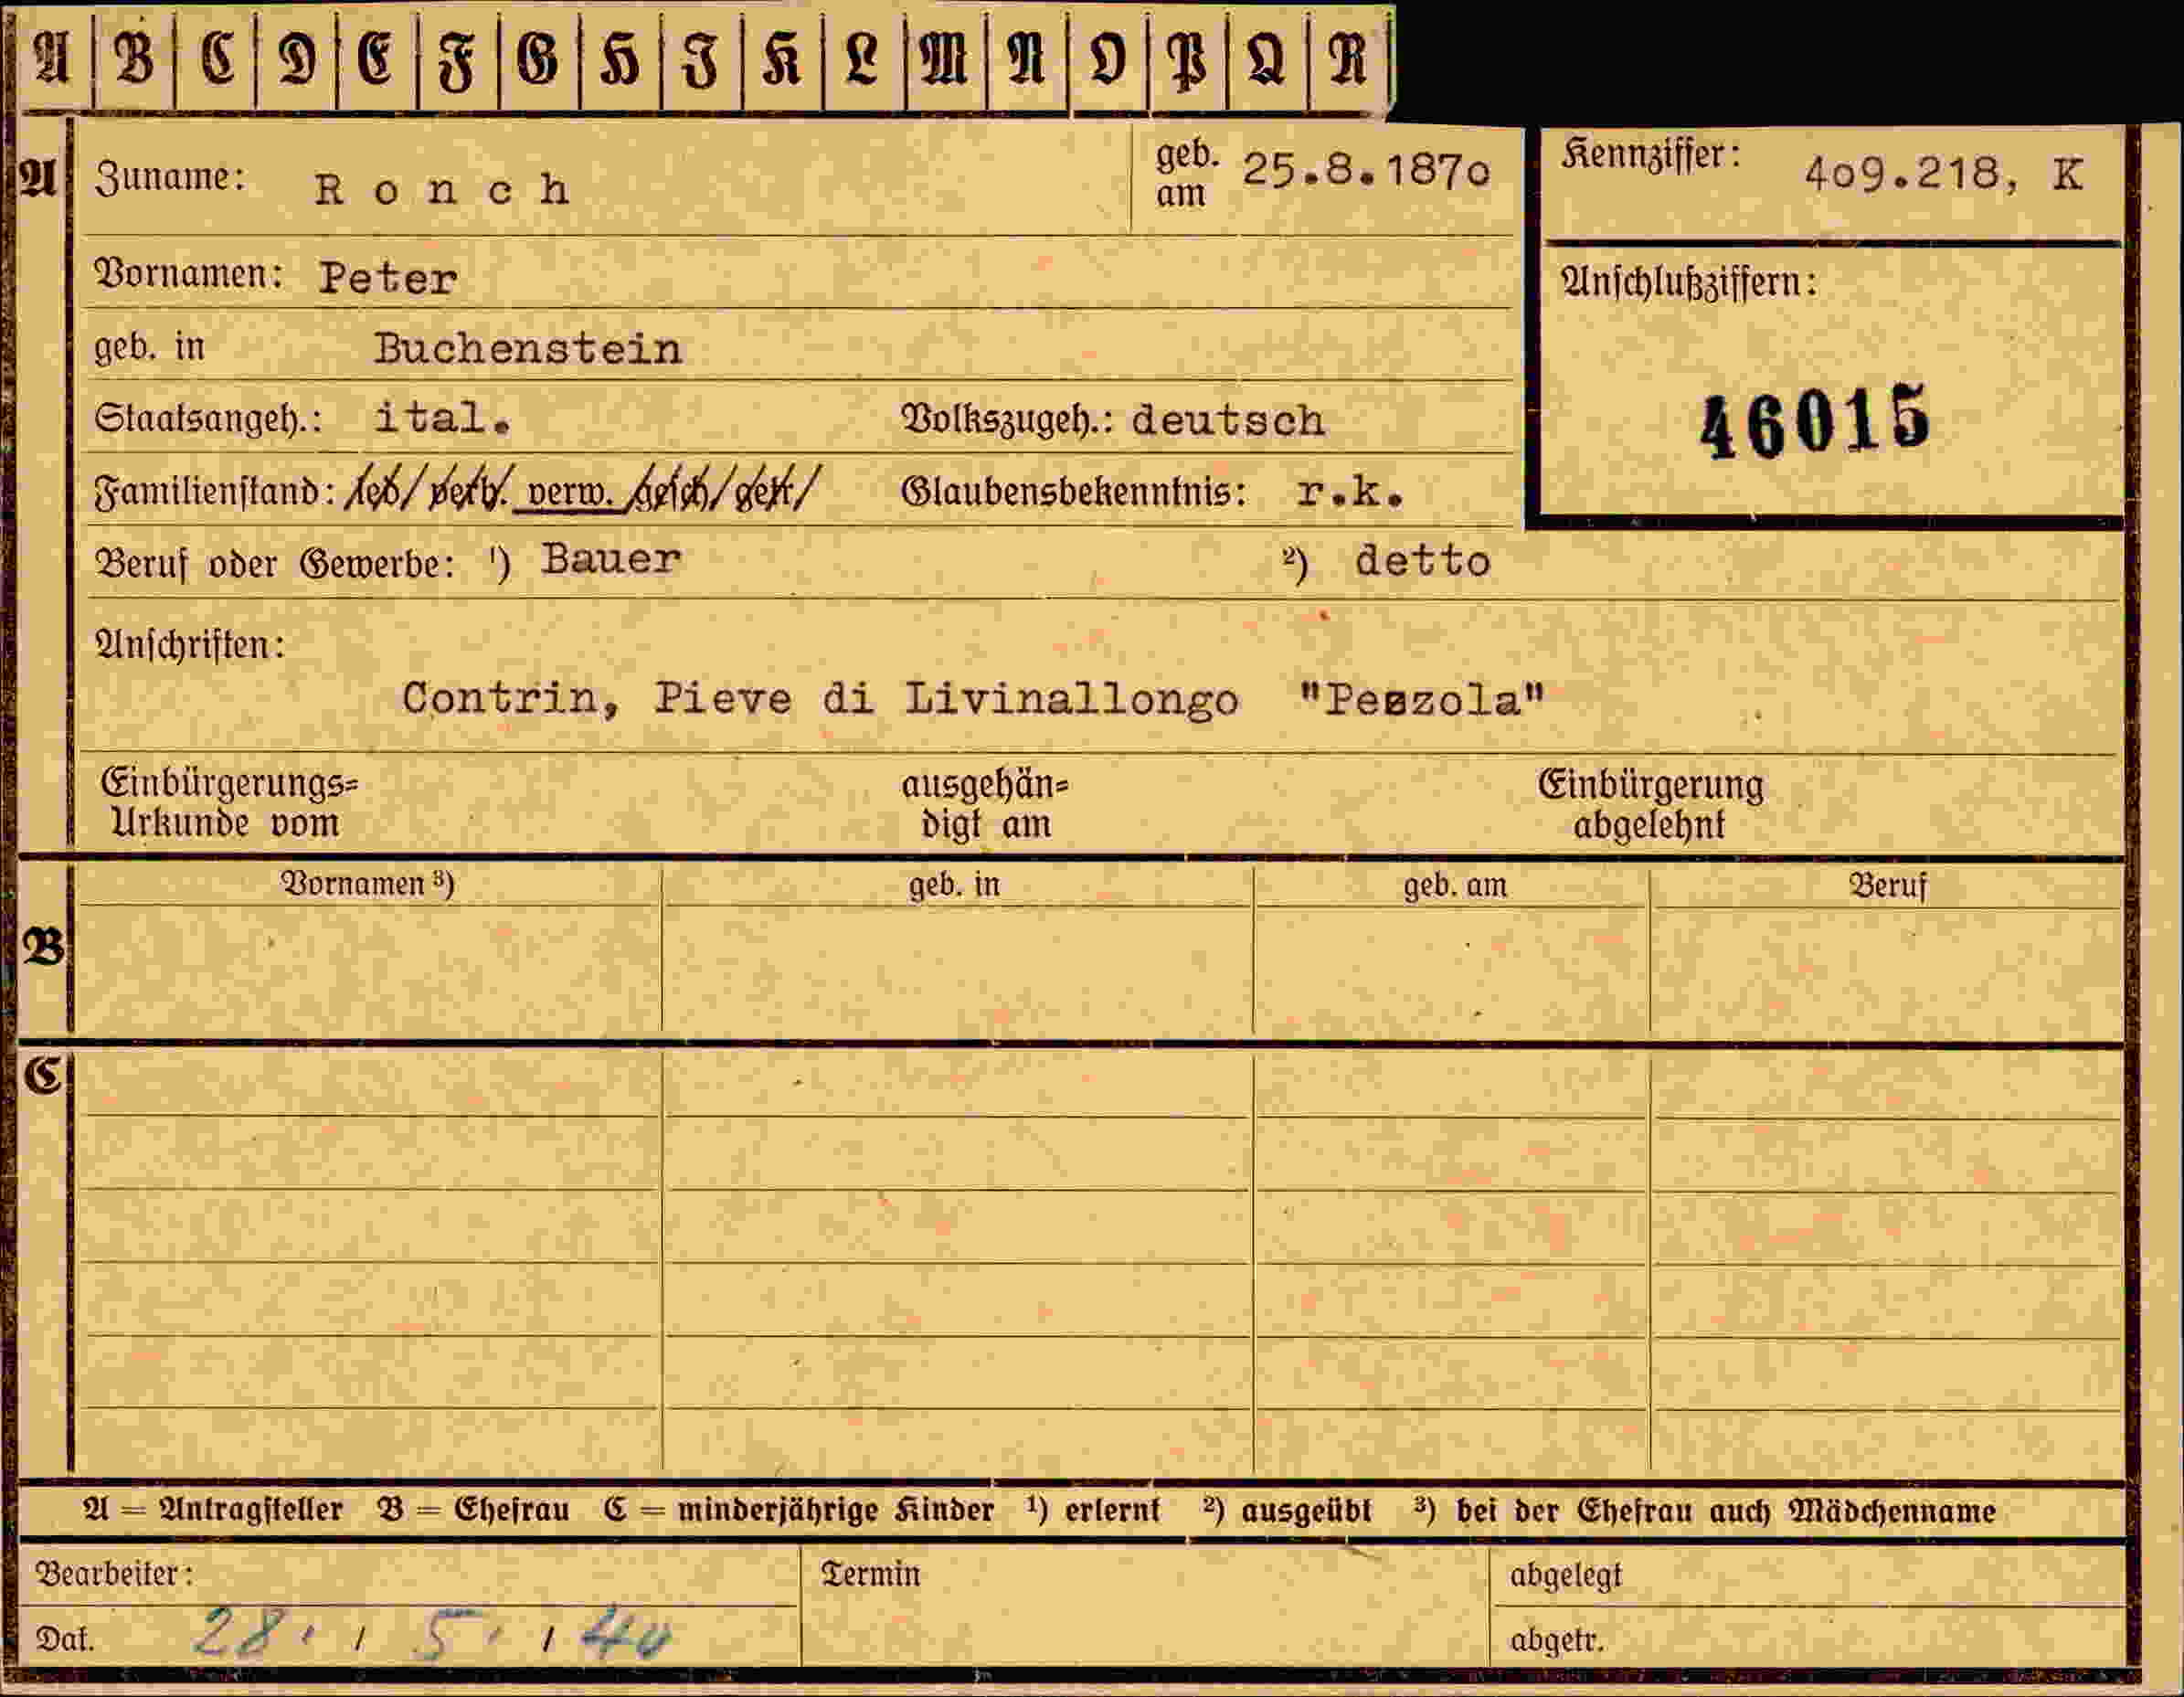 A B C D E F G H I K L M N O P Q R
A Zuname: Ronch geb. am 25.8.1870 Kennziffer: 409.218, K
Vornamen: Peter
Anschlußziffern:
geb. in Buchenstein
46015
Staatsangeh.: ital. Volkszugeh.: deutsch
Familienstand: led. verh. verw. gesch. getr. Glaubensbekenntnis: r.k.
Beruf oder Gewerbe: 1) Bauer 2) detto
Anschriften:
Contrin, Pieve di Livinallongo "Peszola"
Einbürgerungs= ausgehän= Einbürgerung
Urkunde vom digt am abgelehnt
B Vornamen 3) geb. in geb. am Beruf
C
A = Antragsteller B = Ehefrau C = minderjährige Kinder 1) erlernt 2) ausgeübt 3) bei der Ehefrau auch Mädchenname
Bearbeiter: Termin abgelegt
Dat. 28. / 5. / 40 abgetr.